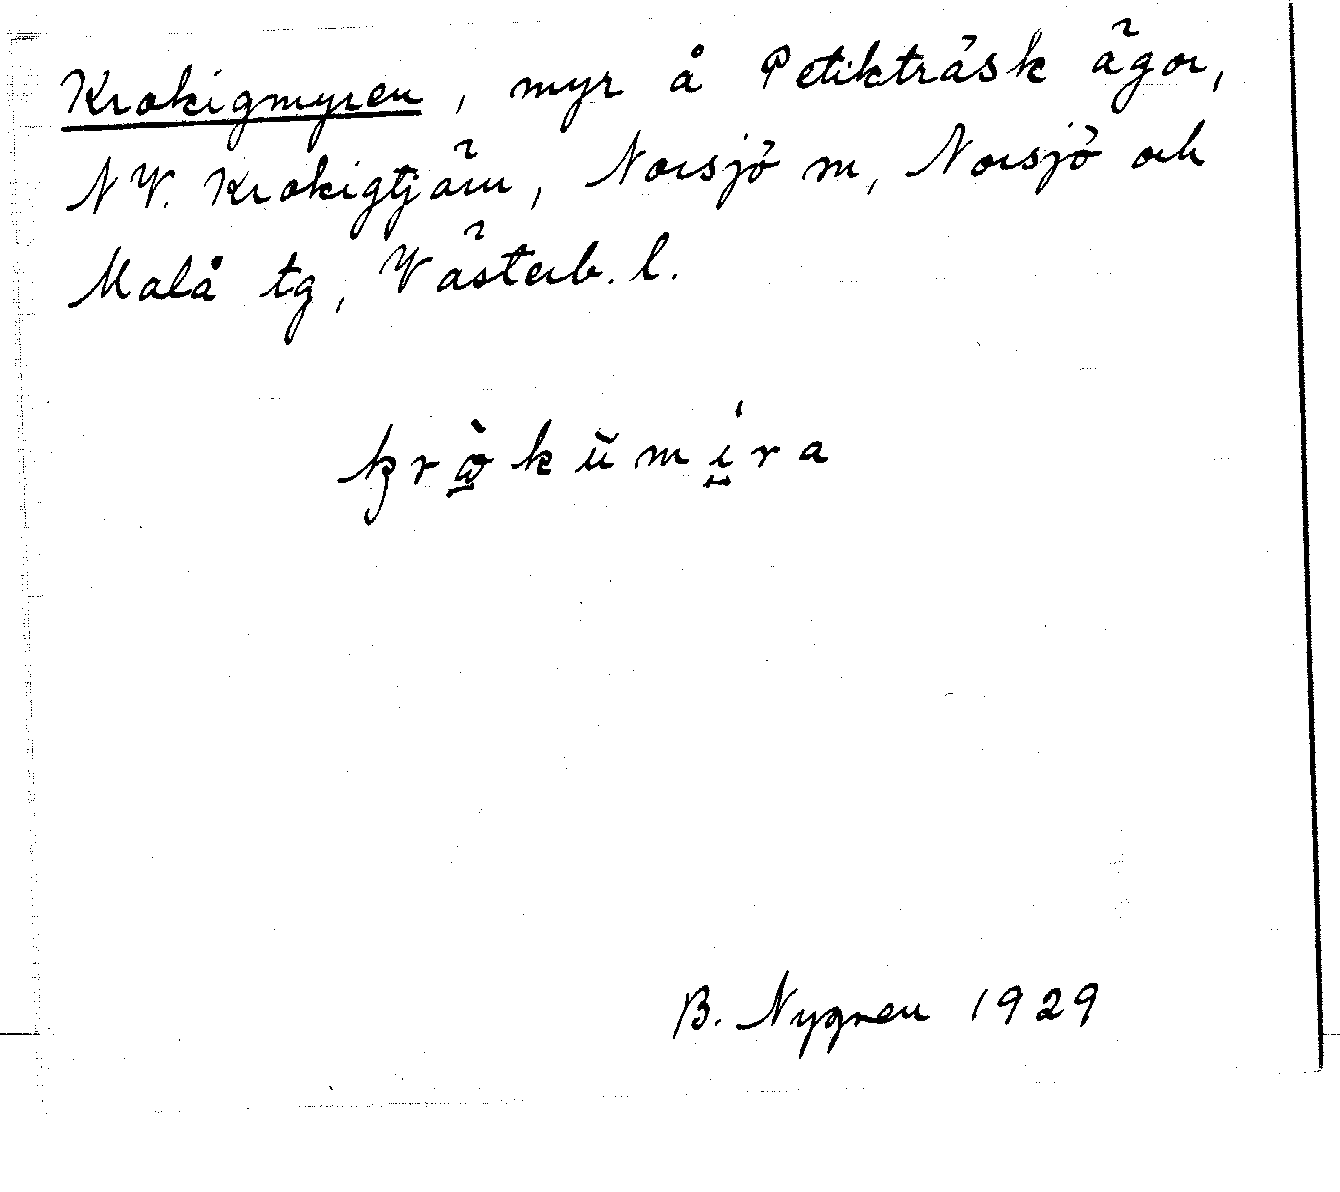 Krokigmyren, myr å Petikträsk ägor,
NV. Krokigtjärn, Norsjö sn, Norsjö och
Malå tg, Västerb. l.
B. Nygren 1929